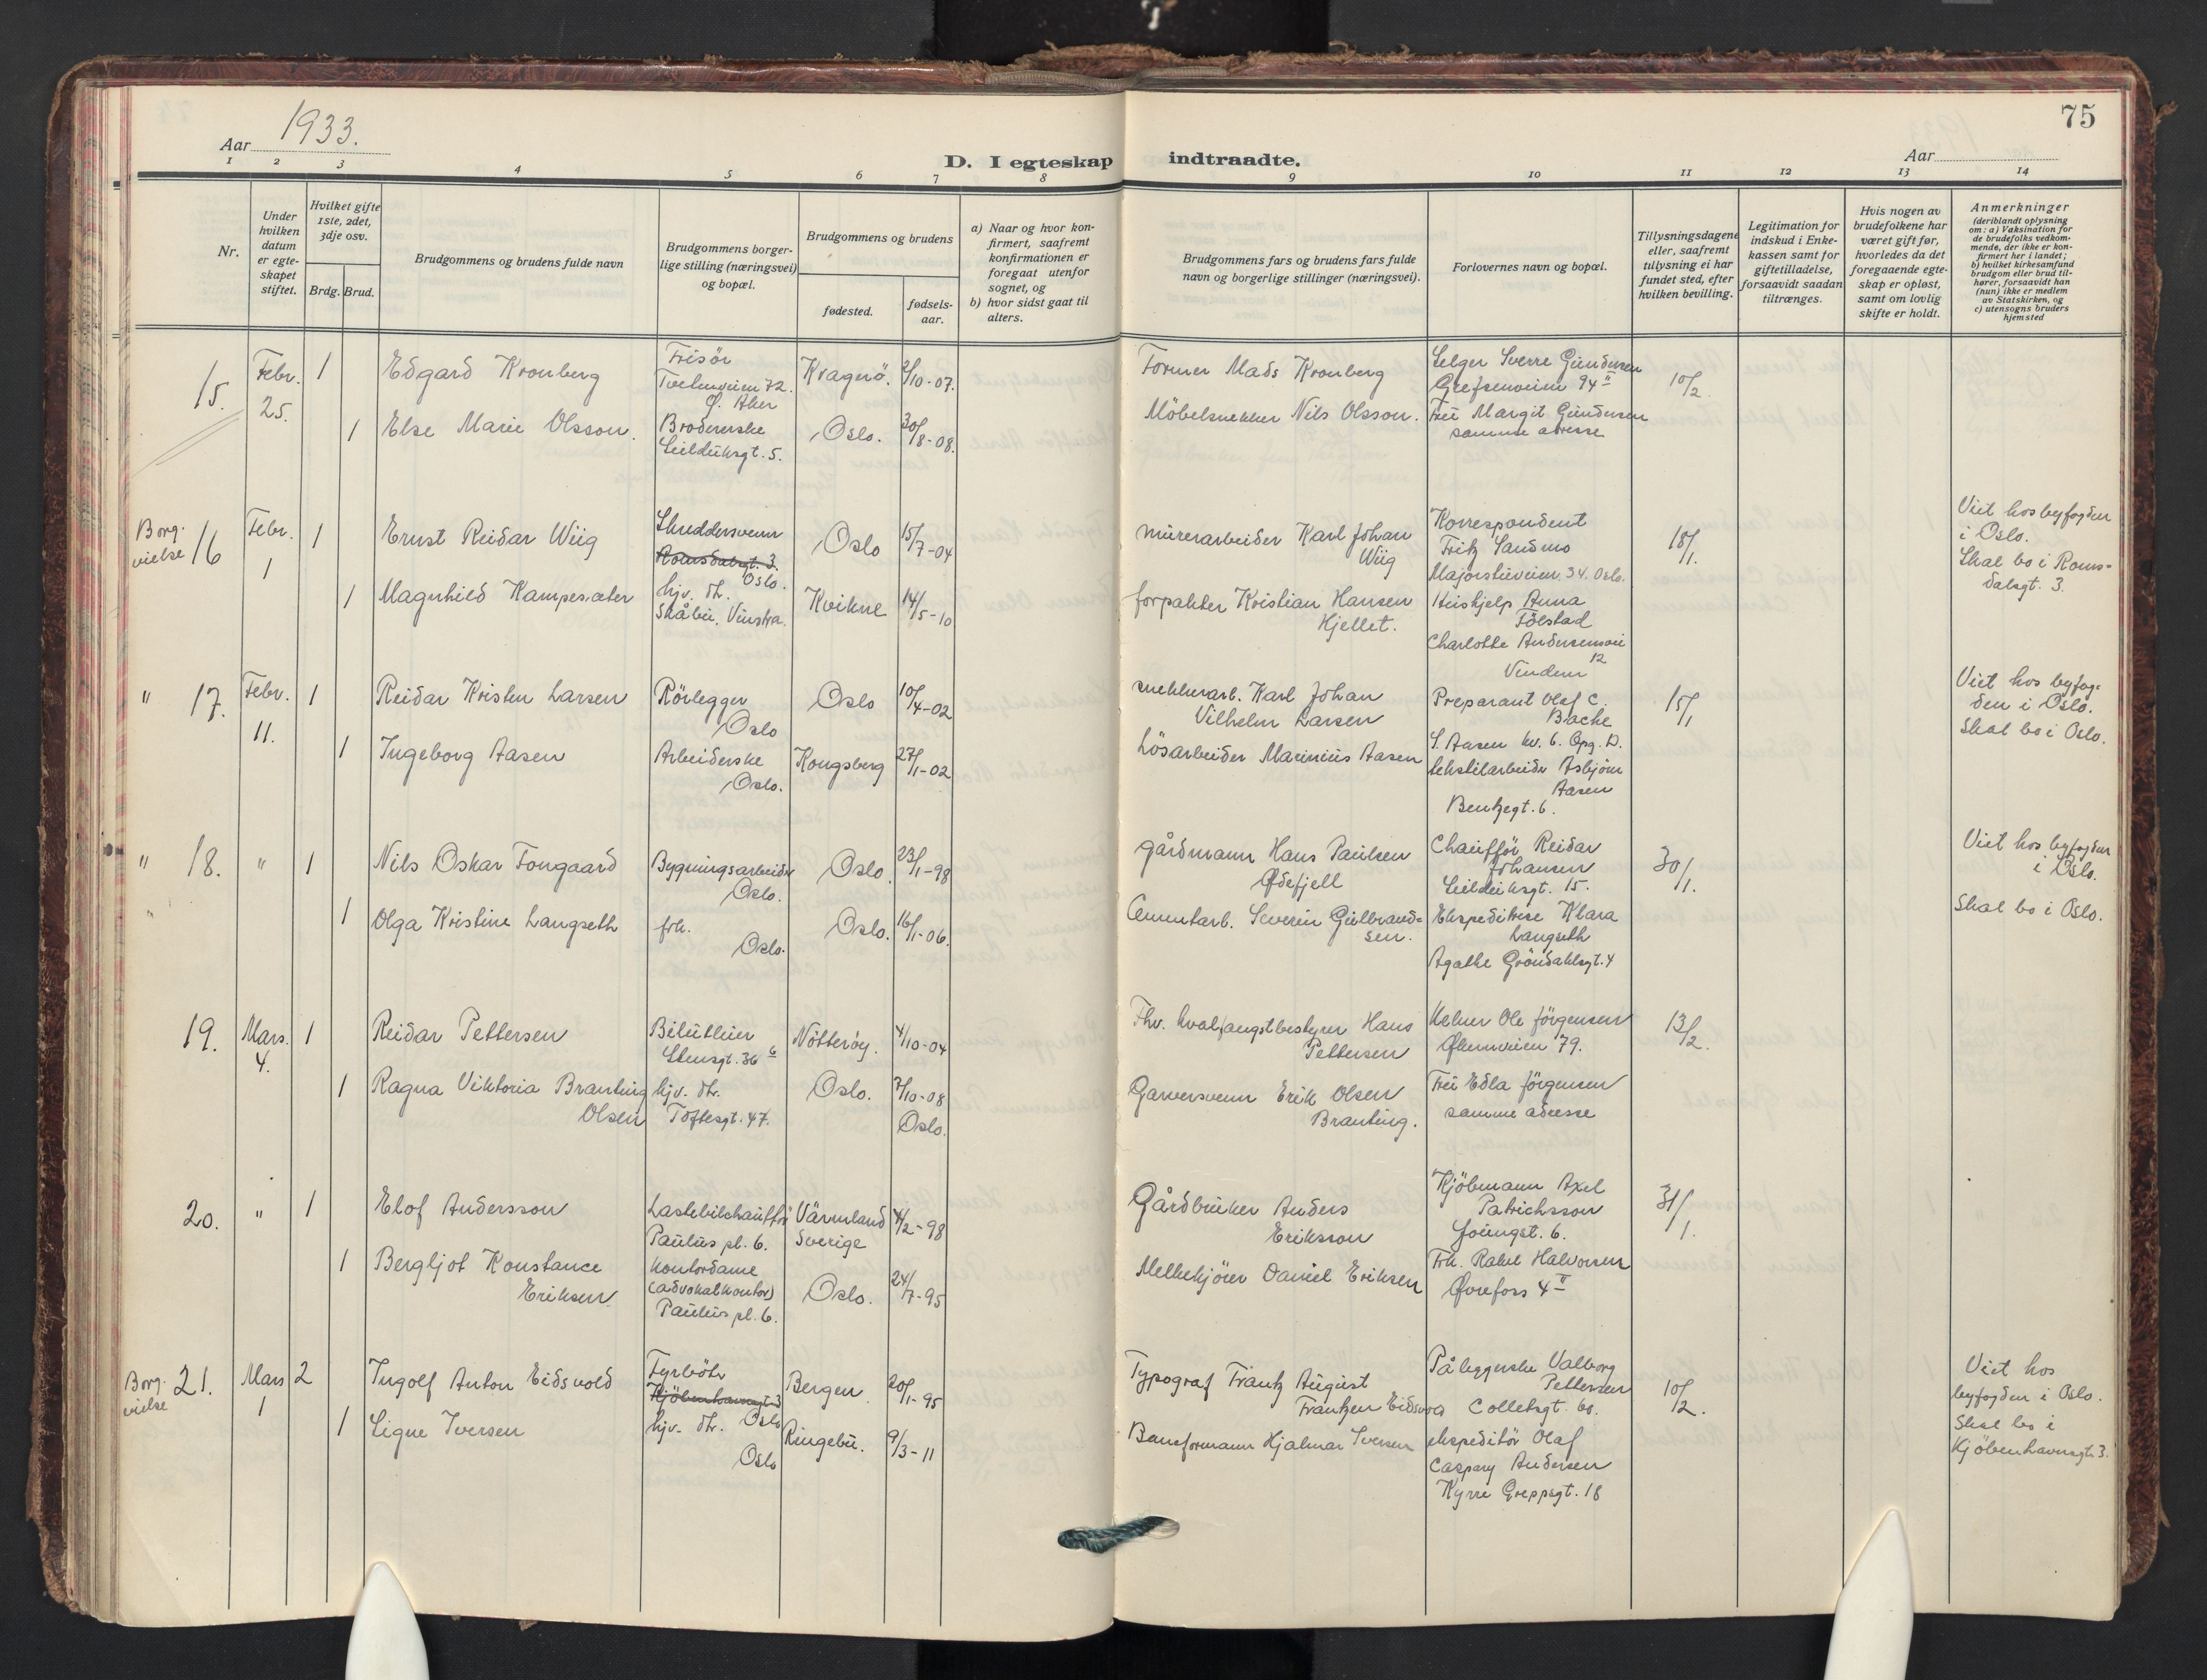 75
Aar 1933.
D. I egteskap indtraadte.
Aar
1 2 3 4 5 6 7 8 9 10 11 12 13 14
Nr.
Under
hvilken
datum
er egte-
skapet
stiftet.
Hvilket gifte
1ste, 2det,
3dje osv.
Brdg. Brud.
Brudgommens og brudens fulde navn
Brudgommens borger-
lige stilling (næringsvei)
og bopæl.
Brudgommens og brudens
fødested.
fødsels-
aar.
a) Naar og hvor kon-
firmert, saafremt
konfirmationen er
foregaat utenfor
sognet, og
b) hvor sidst gaat til
alters.
Brudgommens fars og brudens fars fulde
navn og borgerlige stillinger (næringsvei).
Forlovernes navn og bopæl.
Tillysningsdagene
eller, saafremt
tillysning ei har
fundet sted, efter
hvilken bevilling.
Legitimation for
indskud i Enke-
kassen samt for
giftetilladelse,
forsaavidt saadan
tiltrænges.
Hvis nogen av
brudefolkene har
været gift før,
hvorledes da det
foregaaende egte-
skap er opløst,
samt om lovlig
skifte er holdt.
Anmerkninger
(deriblandt oplysning
om: a) Vaksination for
de brudefolks vedkom-
mende, der ikke er kon-
firmert her i landet;
b) hvilket kirkesamfund
brudgom eller brud til-
hører, forsaavidt han
(hun) ikke er medlem
av Statskirken, og
c) utensogns bruders
hjemsted
15.
Febr.
25.
1
Edgard Kronberg
Frisör
Tvetenveien 72.
Ø. Aker
Kragerö.
2/10-07.
Former Mads Kronberg
Selger Sverre Gundersen
Grefsenveien 94 II
10/2.
1
Else Marie Olsson.
Brodererske
Seilduksgt. 5.
Oslo.
30/8-08.
Möbelsnekker Nils Olsson.
Fru Margit Gundersen
samme adresse
Borg.
vielse
16
Febr.
1
1
Ernst Reidar Wiig
Skreddersvenn
Romsdalsgt. 3.
Oslo.
Oslo
15/7-04
Murerarbeider Karl Johan
Wiig
Korrespondent
Fritz Sandmo
Majorstuveien 34. Oslo.
18/1.
Viet hos byfogden
i Oslo.
Skal bo i Roms-
dalsgt. 3.
1
Magnhild Kampesæter
hjv. dtr.
Skåbu. Vinstra.
Kvikne
14/5-10
forpakter Kristian Hansen
Hjellet.
Hushjelp Anna
Fölstad
Charlotte Andersensvei
12
Vindern
" 17.
Febr.
11.
1
Reidar Kristen Larsen
Rörlegger
Oslo
Oslo
10/4-02
snekkerarb. Karl Johan
Vilhelm Larsen
Preparant Olaf C.
Bache
S. Aasen kv. 6. Opg. D.
15/1
Viet hos byfog-
den i Oslo.
Skal bo i Oslo.
1
Ingeborg Aasen
Arbeiderske
Oslo.
Kongsberg
27/1-02
Lösarbeider Marinius Aasen
tekstilarbeider Asbjörn
Aasen
Bentzegt. 6.
" 18.
"
1
Nils Oskar Tongaard
Bygningsarbeider
Oslo.
Oslo.
23/1-98
Gårdmann Hans Paulsen
Ødefjell
Chaufför Reidar
Johansen
Seilduksgt. 15.
30/1.
Viet hos byfogden
i Oslo.
Skal bo i Oslo.
1
Olga Kristine Langseth
frk.
Oslo.
Oslo.
16/1-06.
Cementarb. Severin Gulbrand-
sen.
Ekspeditrise Klara
Langseth
Agathe Gröndahlsgt. 4
19.
Mars.
4.
1
Reidar Pettersen
Bilutleier
Stensgt. 36 b
Nötteröy.
4/10-04
Fhv. hvalfangstbestyrer Hans
Pettersen
Kelner Ole Jörgensen
Økernveien 79.
13/2.
1
Ragna Viktoria Branting
Olsen
hjv. dtr.
Toftesgt. 47.
Oslo.
7/10-08
Oslo.
Garversvenn Erik Olsen
Branting.
Fru Edla Jörgensen
samme adresse
20.
"
1
Elof Andersson
Lastebilchauffør
Paulus pl. 6.
Värmland
Sverige
4/2-98
Gårdbruker Anders
Eriksson
Kjöbmann Axel
Patrichsson
6.
31/1.
1
Bergljot Konstance
Eriksen
Kontordame
(advokatkontor)
Paulus pl. 6.
Oslo.
24/7-95
Melkekjörer Daniel Eriksen
Frk. Rakel Halvorsen
Øvrefoss 4 II
Borg.
vielse
21.
Mars
1
2
Ingolf Anton Eidsvold
Fyrböter
Kjöbenhavnsgt. 3
Oslo
Bergen
20/1-95
Typograf Frantz August
Frantzen Eidsvold
Påleggerske Valborg
Pettersen
Colletsgt. 60.
10/2.
Viet hos
byfogden i Oslo.
Skal bo i
Kjöbenhavnsgt. 3.
1
Signe Iversen
hjv. dtr.
Oslo
Ringebu.
9/3-11
Baneformann Hjalmar Iversen
ekspeditör Olaf
Caspary Andersen
Kyrre Greppsgt. 18